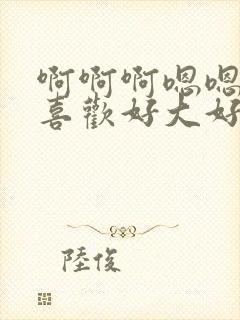 啊啊啊嗯嗯
喜歡好大好
陸俊